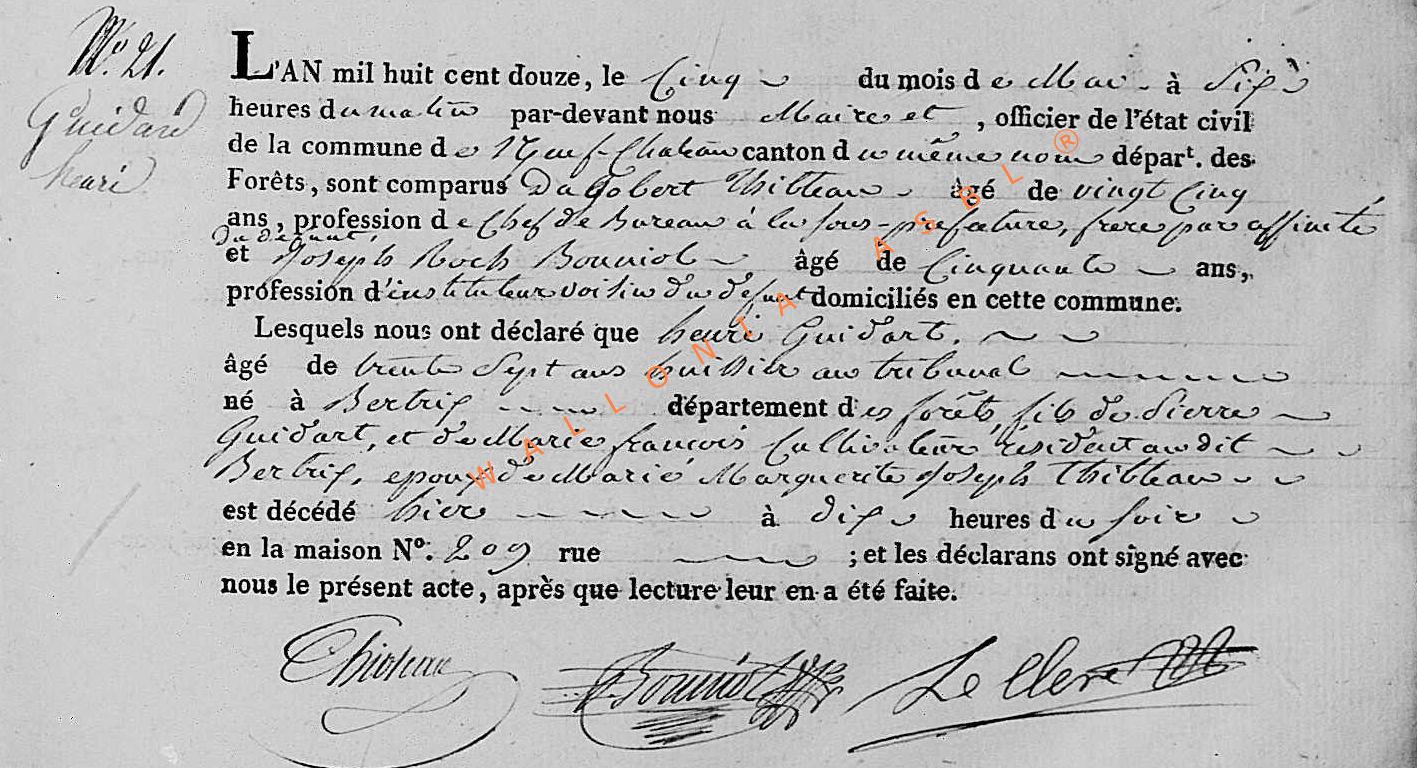 N.° 21.
Guidard
henri
L'AN mil huit cent douze, le Cinq du mois de Mai à Six
heures du matin par-devant nous Maire et, officier de l'état civil
de la commune de Neuf-Chateau canton du même nom départ. des
Forêts, sont comparus Dagobert Thibteau âgé de vingt Cinq
ans, profession de Chef de Bureau à la sous-préfecture, frere par affinité
du défunt,
et Joseph Roch Bonniol âgé de Cinquante ans,
profession d'instituteur voisin du défunt domiciliés en cette commune.
Lesquels nous ont déclaré que henri Guidart.
âgé de trente Sept ans huissier au tribunal
né à Bertrix département des forêts, fils de Pierre
Guidart, et de Marie francois Cultivateur résident au dit
Bertrix, epoux de Marie Marguerite Joseph Thibteau
est décédé hier à dix heures du soir
en la maison N°. 209 rue ; et les déclarans ont signé avec
nous le présent acte, après que lecture leur en a été faite.
Bonniol Le Clerc
WALLONIA ASBL ®